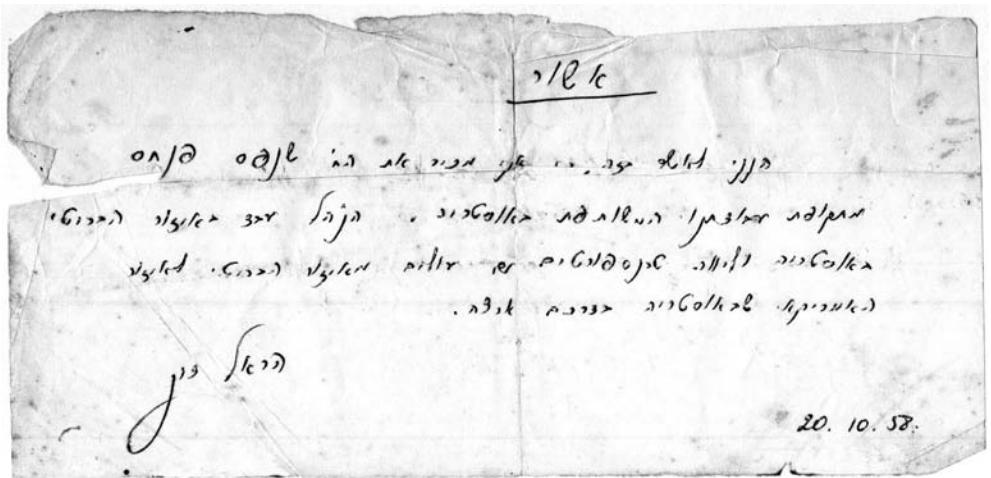 אשור
הנני לאשר בזה כי אני מכיר את הח' שנפס פנחס
מתקופת עבודתנו המשותפת באוסטריה. הנ"ל עבד באיזור הבריטי
באוסטריה וליווה טרנספורטים של עולים מאיזור הבריטי לאיזור
האמריקאי שבאוסטריה בדרכם ארצה.
הראל
20. 10. 58.